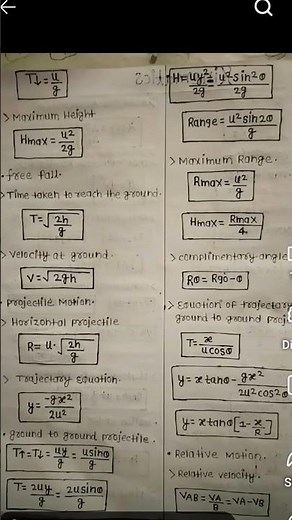 T↓ = u/g
> Maximum Height
Hmax = u²/2g
• free fall.
> Time taken to reach the ground.
T = √2h/g
> velocity at ground.
V = √2gh
• Projectile Motion.
> Horizontal projectile
R = u · √2h/g
> Trajectory Equation.
y = -gx²/2u²
• ground to ground projectile.
T↑ = T↓ = uy/g = usinθ/g
T = 2uy/g = 2usinθ/g
H = uy²/2g = u²sin²θ/2g
Range = u²sin2θ/g
> Maximum Range.
Rmax = u²/g
Hmax = Rmax/4
> complimentary angle
Rθ = R90-θ
> Equation of trajectory
ground to ground proj
T = x/ucosθ
y = x tanθ - gx²/2u²cos²θ
y = x tanθ [1 - x/R]
• Relative Motion.
> Relative velocity.
VAB = VA/B = VA - VB